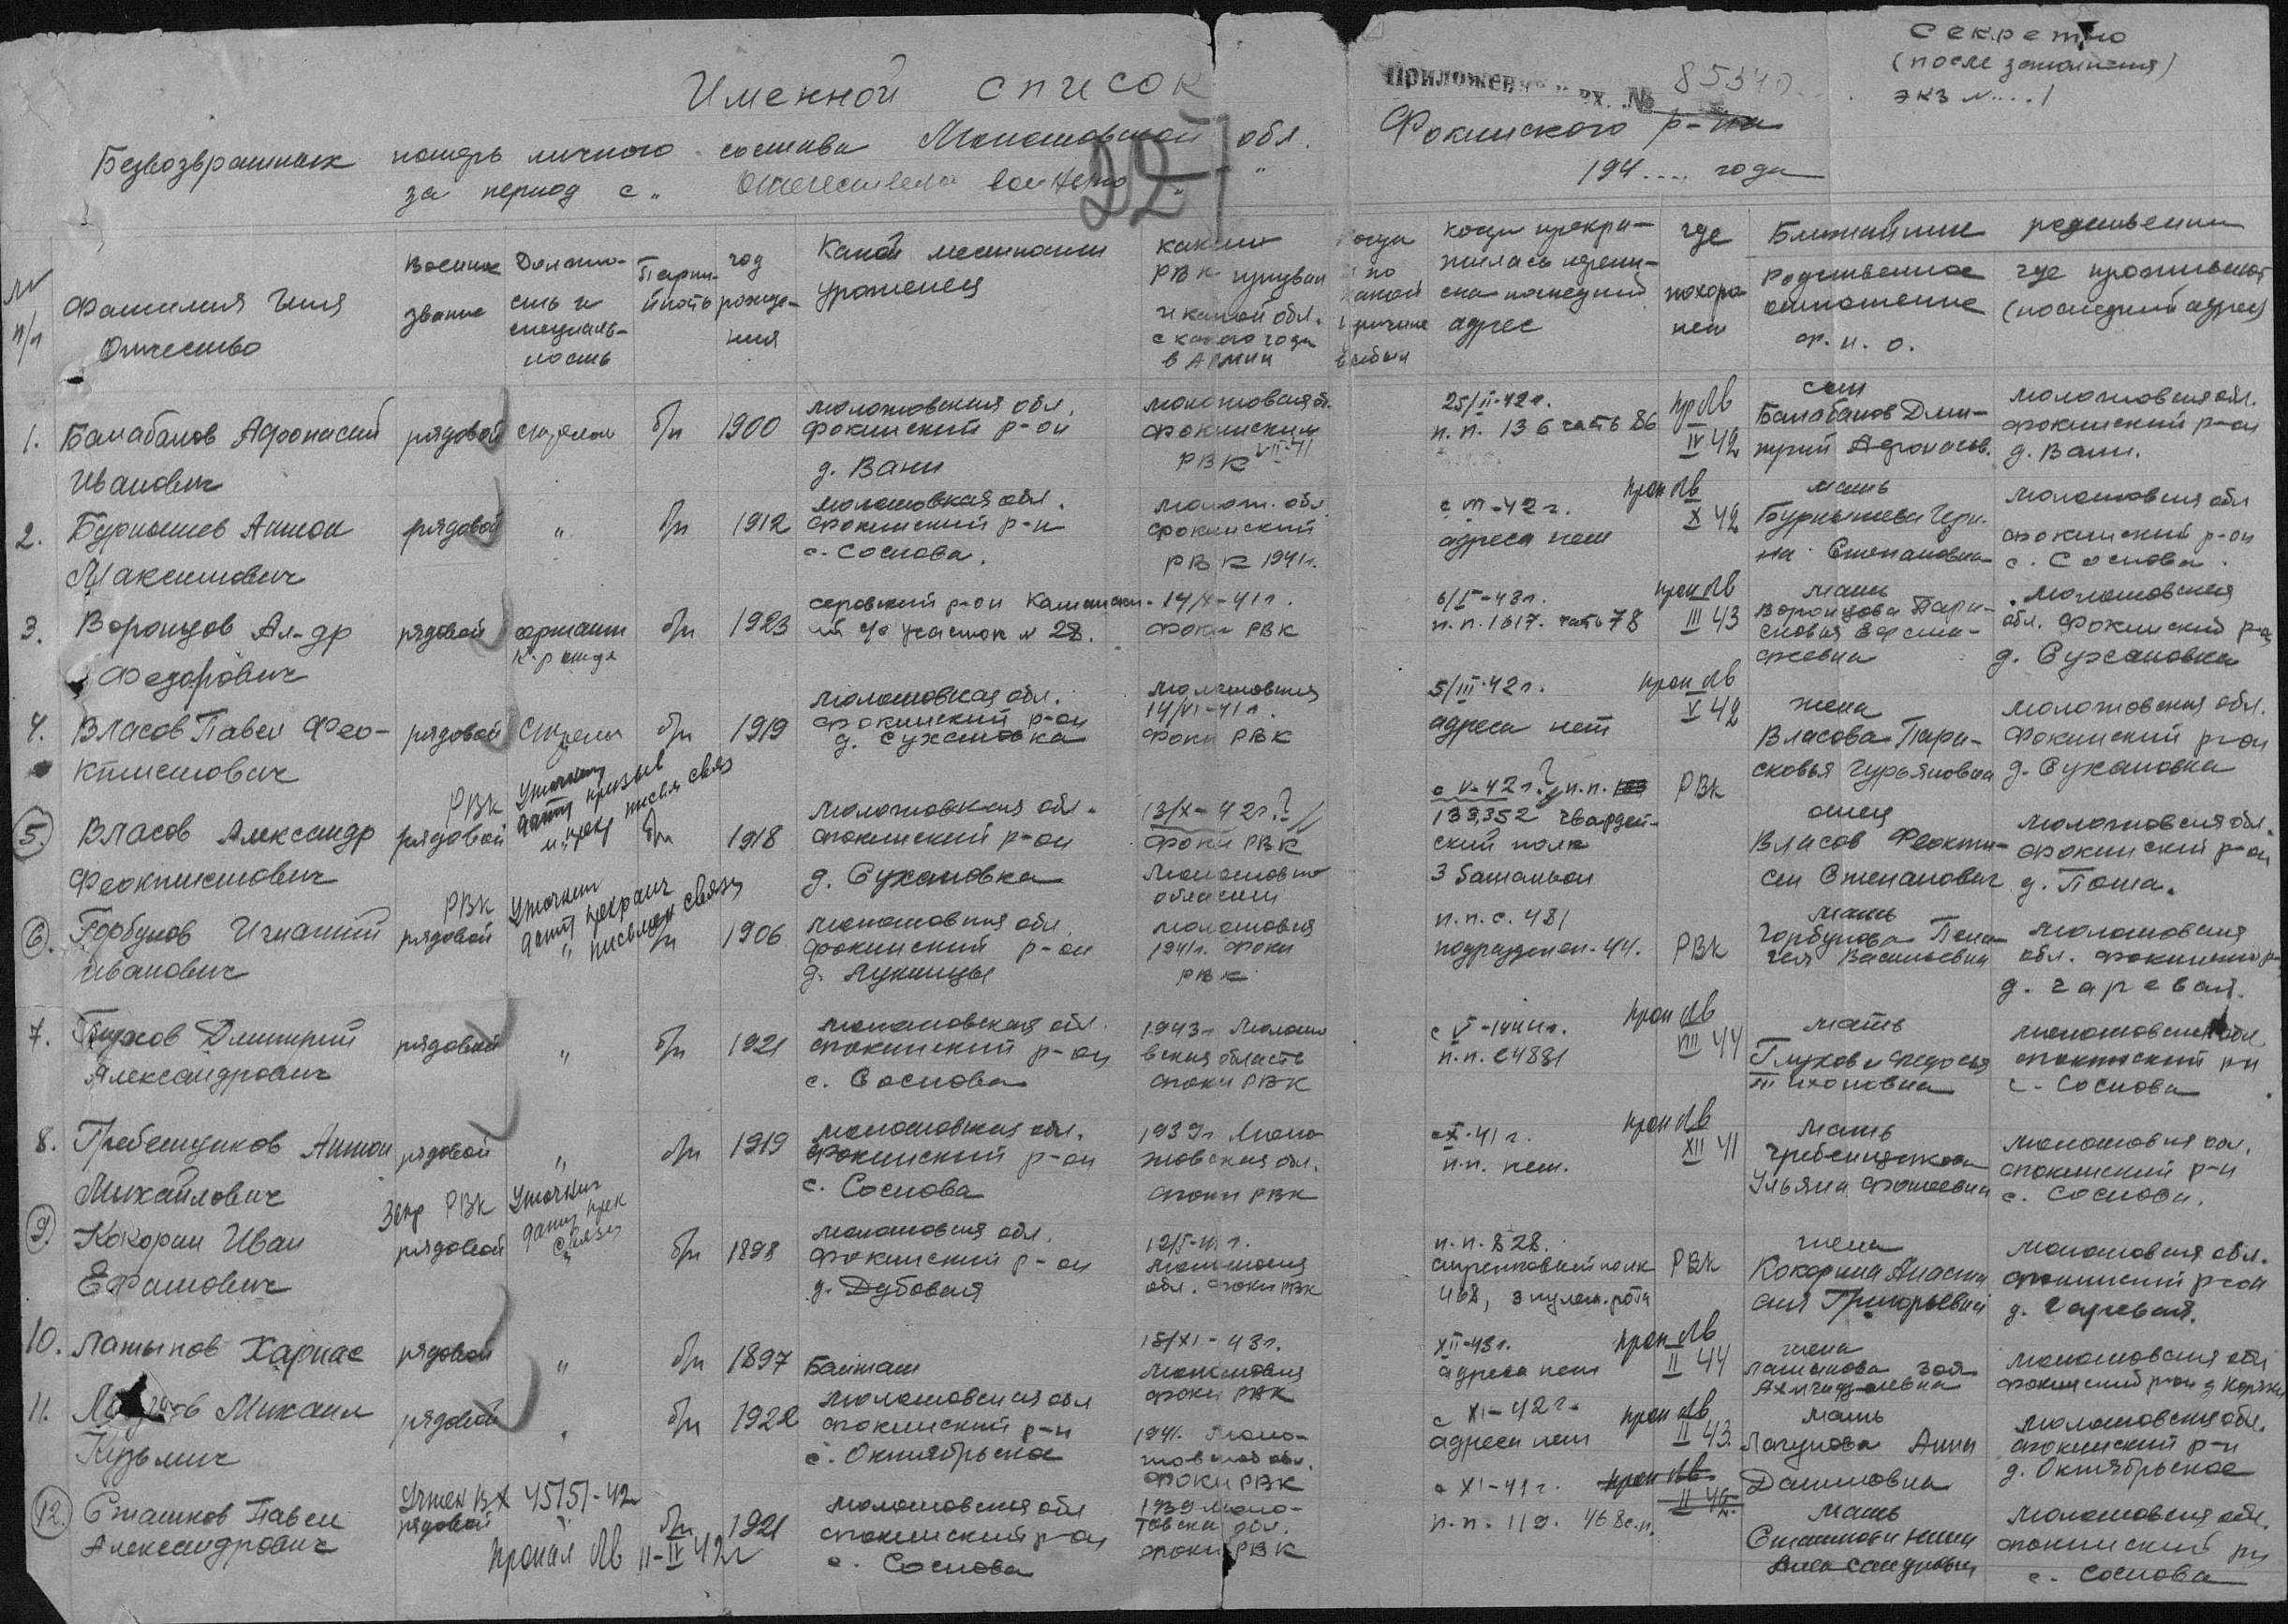 Секретно
(после заполнения)
экз №....1
Приложение к вх. № 85340
Именной список
Безвозвратных потерь личного состава Молотовской обл. Фокинского р-на
за период с „ Отечествен войны „ 194.... года
227
№ п/п
Фамилия Имя Отчество
Военное звание
Должность и специальность
Партийность
год рождения
Какой местности уроженец
каким РВК призван и какой обл. с какого года в Армии
Когда и по какой причине выбыл
когда прекратилась переписка последний адрес
где похоронен
Ближайшие родственники
Родственное отношение ф. и. о.
где проживают (последний адрес)
1. Балабанов Афонасий Иванович
рядовой
стрелок
б/п
1900
Молотовская обл. Фокинский р-он д. Вани
Молотовская об. Фокинским РВК VII-41
25/II-42 г. п.п. 136 часть 86
пр Лв IV 42
сын Балабанов Дмитрий Афонасов.
Молотовская обл. Фокинский р-он д. Вани.
2. Бурнышев Антон Максимович
рядовой
„
б/п
1912
Молотовская обл. Фокинский р-н с. Соснова.
Молот. обл Фокинский РВК 1941 г.
с VII-42 г. адреса нет
проп Лв X 42
мать Бурнышева Ирина Степановна
Молотовская обл Фокинский р-он с. Соснова.
3. Воронцов Ал-др Федорович
рядовой
б/п
1923
серовский р-он участок № 28.
14/X-41 г. Фоки РВК
п.п. 1617. часть 78
проп Лв III 43
мать Воронцова
Молотовская обл. Фокинский р-он д. Сухановка
4. Власов Павел Феоктистович
рядовой
Стрелок
б/п
1919
Молотовская обл. Фокинский р-он д. Сухановка
Молотовская 14/VI-41 г. Фоки РВК
5/III-42 г. адреса нет
проп Лв V 42
жена Власова Парасковья Гурьяновна
Молотовская обл. Фокинский р-он д. Сухановка
5. Власов Александр Феоктистович
РВК Уточнит дату призыв и прекр письм связ
рядовой
б/п
1918
Молотовская обл. Фокинский р-он д. Сухановка
13/X-42 г.? Фоки РВК Молотовской области
с V-42 г.? п.п. 133,352 гвардейский полк 3 батальон
РВК
отец Власов Феоктист Степанович
Молотовская обл. Фокинский р-он д. Поша.
6. Горбунов Игнатий Иванович
РВК Уточнит дату прекращ письмен связи
рядовой
„
б/п
1906
Молотовская обл. Фокинский р-он
Молотовская 1941 г. Фоки РВК
п.п. с. 481 подразделен. 44.
РВК
мать Горбунова Васильевна
Молотовская обл. Фокинский р-н д. Гаревая.
7. Глухов Дмитрий Александрович
рядовой
„
б/п
1921
Молотовская обл. Фокинский р-он с. Соснова
1943 г Молотовская область Фоки РВК
с V-1944 г. п.п. 24881
проп Лв VIII 44
мать Глухова Федосья Тихоновна
Молотовская обл. Фокинский р-н с. Соснова
8. Гребенщиков Антон Михайлович
рядовой
„
б/п
1919
Молотовская обл. Фокинский р-он с. Соснова
1939 г Молотовская обл. Фоки РВК
с X-41 г. п.п. нет.
проп Лв XII 41
мать Гребенщикова Ульяна
Молотовская обл. Фокинский р-н с. Соснова.
9. Кокорин Иван Ефимович
Запр РВК Уточнит дату прек связи
рядовой
„
б/п
1898
Молотовская обл. Фокинский р-он д. Дубовая
Молотовская обл. Фоки РВК
п.п. 828. стрелковый полк 468, 3 пулем. рота
РВК
жена Кокорина Анастасия Григорьевна
Молотовская обл. Фокинский р-он д. Гаревая.
10. Латыпов Харпас
рядовой
„
б/п
1897
18/XI-43 г. Молотовская Фоки РВК
XII-43 г. адреса нет
проп Лв II 44
жена Латыпова Зоя
Молотовская обл Фокинский р-он
11. Михаил Кузьмич
рядовой
„
б/п
1922
Молотовская обл Фокинский р-н с. Октябрьское
1941. Молотовской обл. Фоки РВК
с XI-42 г. адреса нет
проп Лв II 43.
мать Лагунова Анна Даниловна
Молотовская обл. Фокинский р-н д. Октябрьское
12. Сташков Павел Александрович
Учтен вх 45151-42
рядовой
„
пропал Лв II-IV 42 г
б/п
1921
Молотовская обл Фокинский р-он с. Соснова
1939 Молотовская обл. Фоки РВК
с XI-41 г. п.п. 119. 468 с.п.
проп Лв II 42.
мать Сташкова Нина Александровна
Молотовская обл. Фокинский р-н с. Соснова